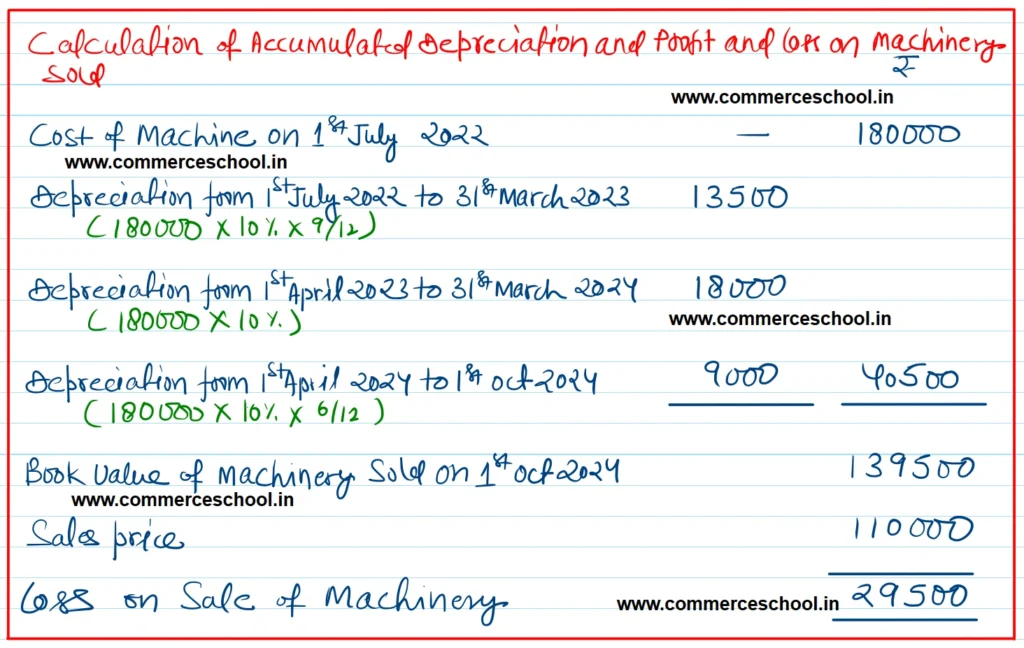 Calculation of Accumulated Depreciation and Profit and Loss on Machinery
Sold
₹
www.commerceschool.in
Cost of Machine on 1st July 2022 — 180000
www.commerceschool.in
Depreciation from 1st July 2022 to 31st March 2023 13500
(180000 X 10% x 9/12)
Depreciation from 1st April 2023 to 31st March 2024 18000
(180000 X 10%)
www.commerceschool.in
Depreciation from 1st April 2024 to 1st Oct 2024 9000 40500
(180000 X 10% x 6/12)
Book Value of Machinery Sold on 1st Oct 2024 139500
www.commerceschool.in
Sales price 110000
Loss on Sale of Machinery 29500
www.commerceschool.in